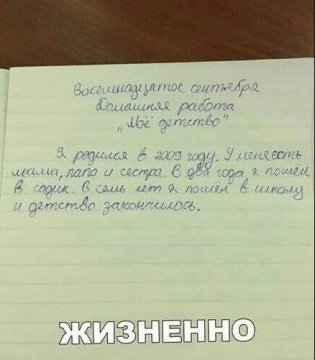 Восемнадцатое сентября
Домашняя работа
"Моё детство"
Я родился в 2009 году. У меня есть
мама, папа и сестра. В два года я пошел
в садик. В семь лет я пошел в школу
и детство закончилось.
ЖИЗНЕННО